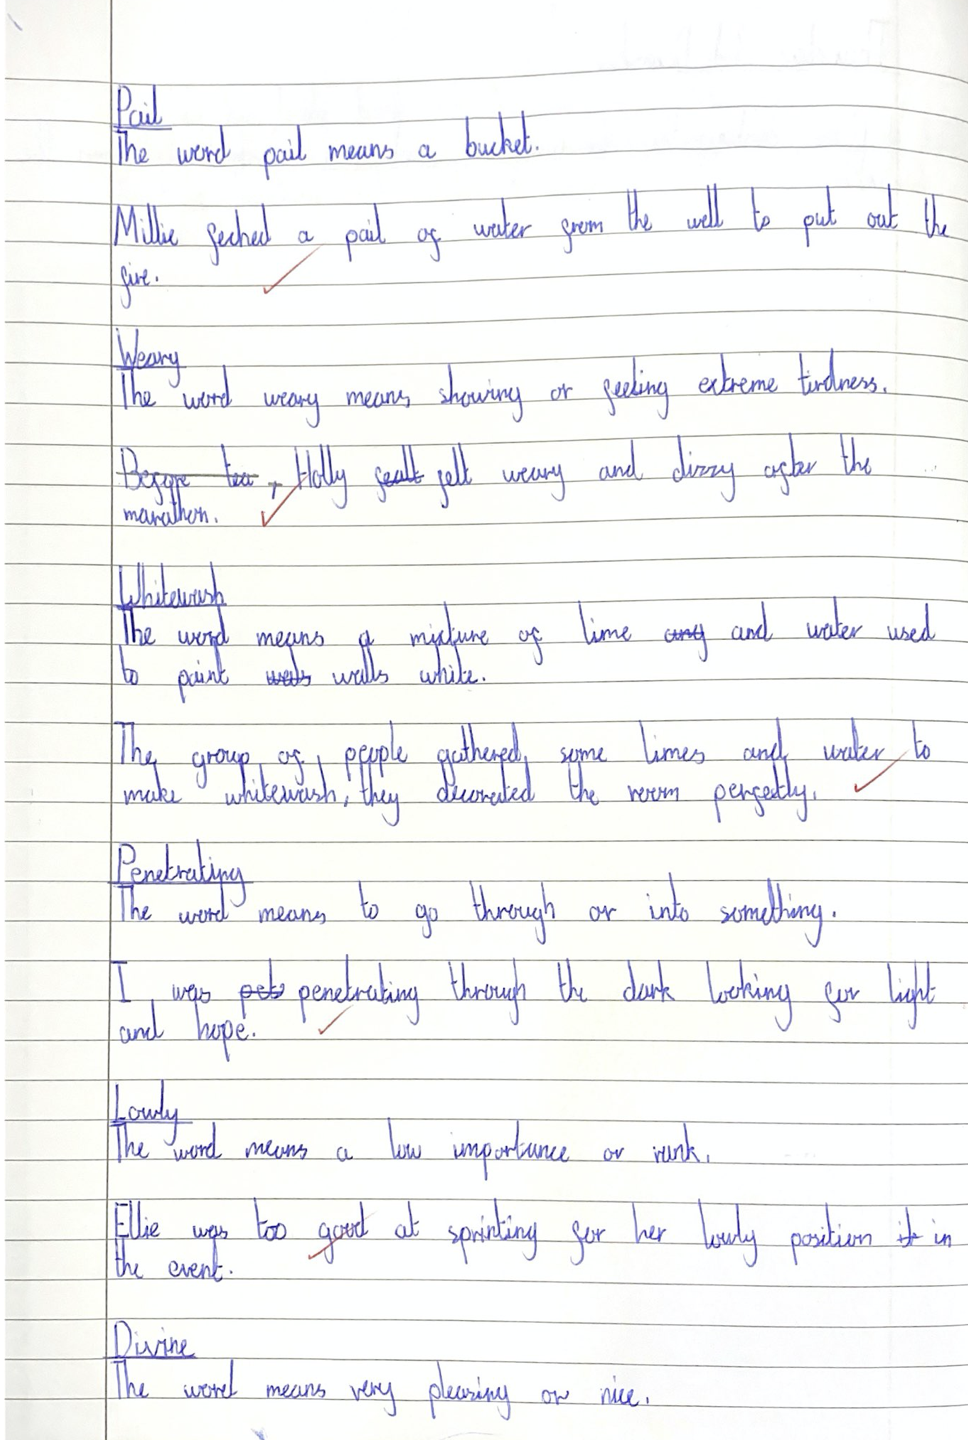 Pail
The word pail means a bucket.
Millie feched a pail of water from the well to put out the
fire.
Weary
The word weary means showing or feeling extreme tirdness.
Before tea, Holly fealt felt weary and dizzy after the
marathon.
Whitewash
The word means a mixture of lime and and water used
to paint walls white.
The group of people gathered some limes and water to
make whitewash, they decorated the room perfectly.
Penetrating
The word means to go through or into something.
I was pet penetrating through the dark looking for light
and hope.
Lowly
The word means a low importance or rank.
Ellie was too good at sprinting for her lowly position it in
the event.
Divine
The word means very pleasing or nice.